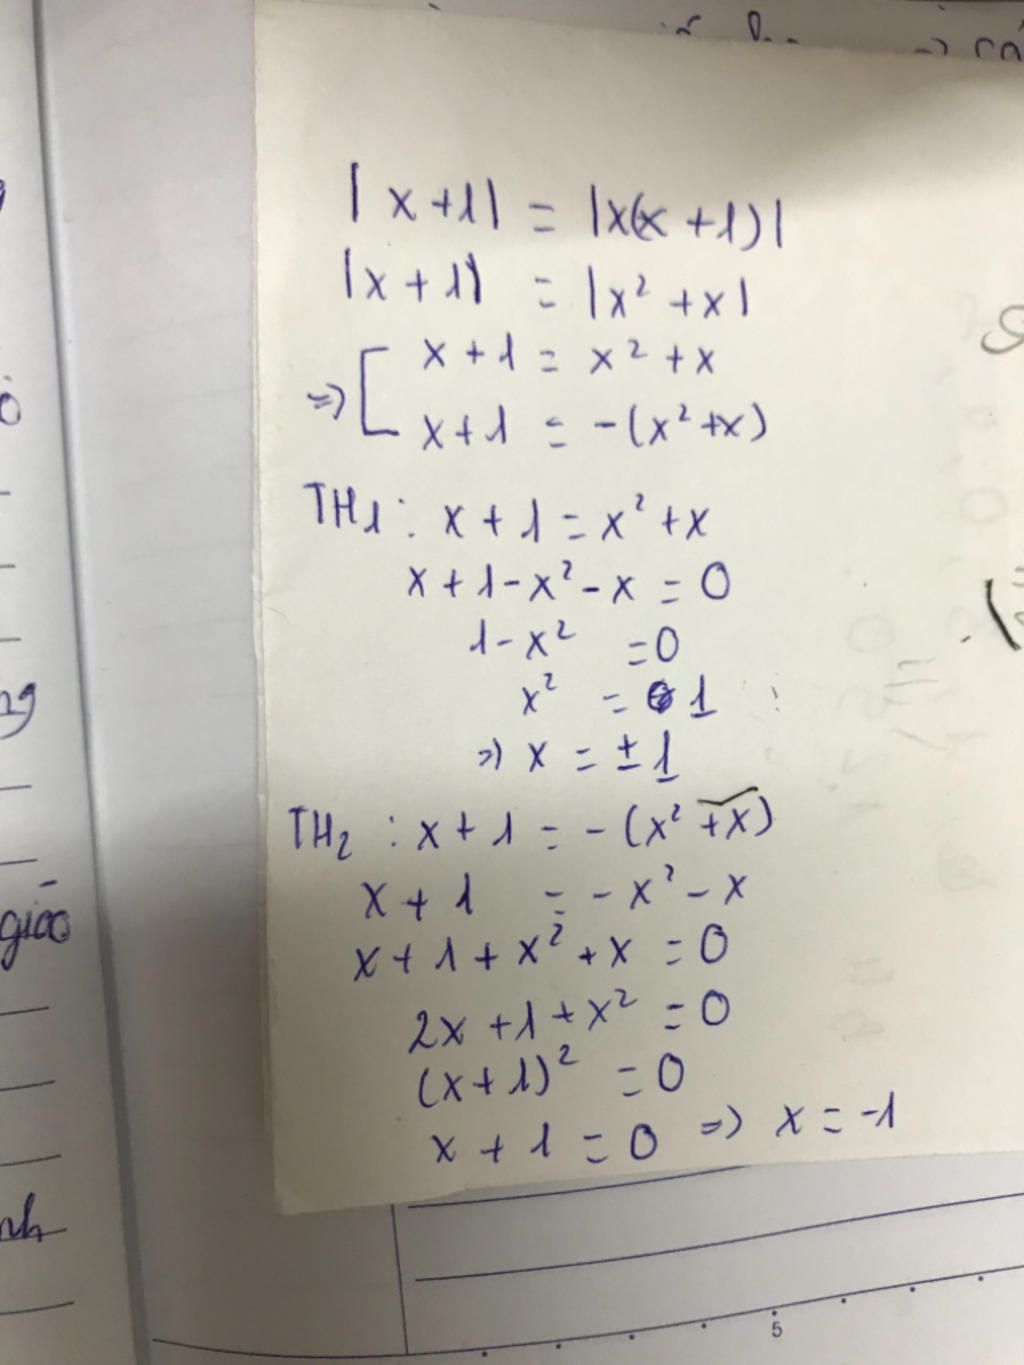 cá
|x+1| = |x(x+1)|
|x+1| = |x² + x|
=> [ x+1 = x² + x
x+1 = -(x²+x)
TH1: x+1 = x² + x
x+1-x²-x = 0
1-x² = 0
x² = 1
=> x = ±1
TH2: x+1 = -(x²+x)
x+1 = -x²-x
x+1+x²+x = 0
2x+1+x² = 0
(x+1)² = 0
x+1 = 0 => x = -1
giáo
5